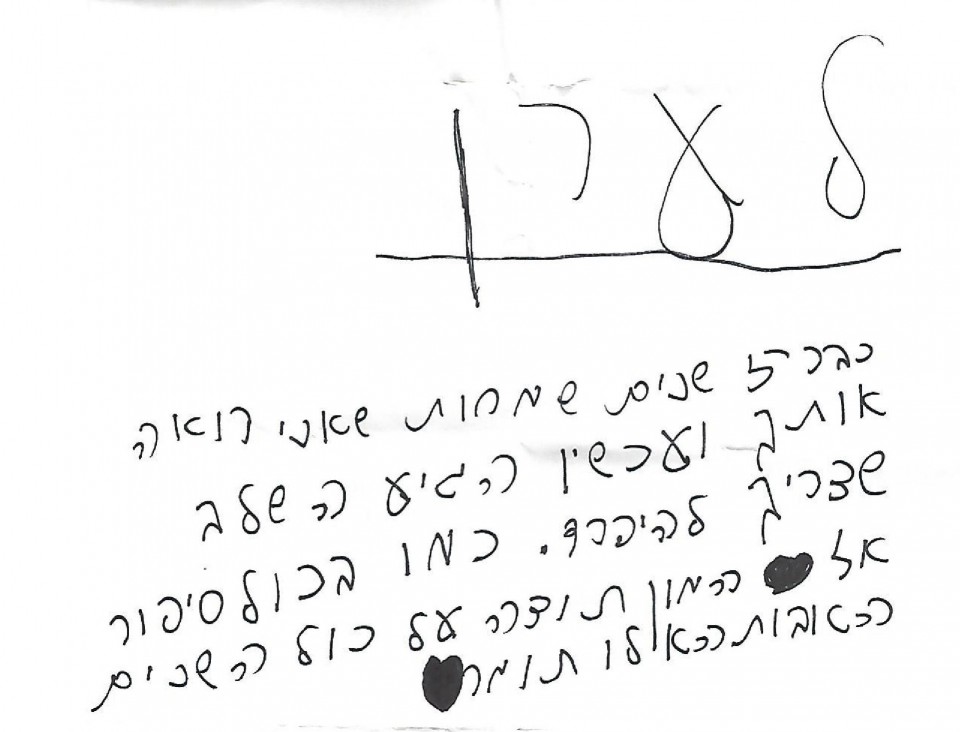 לערן
כבר 5 שנים שמחות שאני רואה
אותך ועכשיו הגיע השלב
שצריך להיפרד. כמו בכול סיפור
אז המון תודה על כול השנים
הטובות האלו תומר